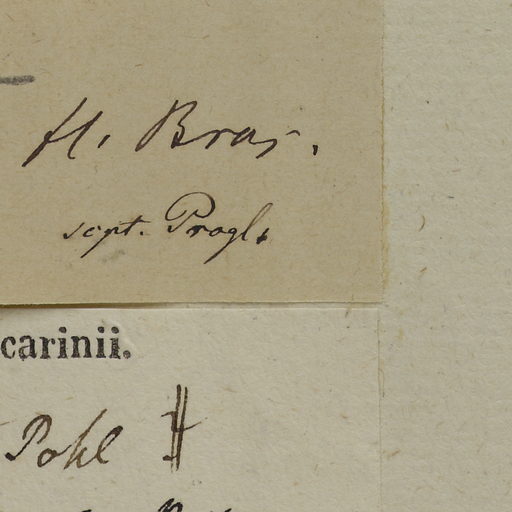 fl. Bras.
scpt. Progl.
carinii.
Pohl